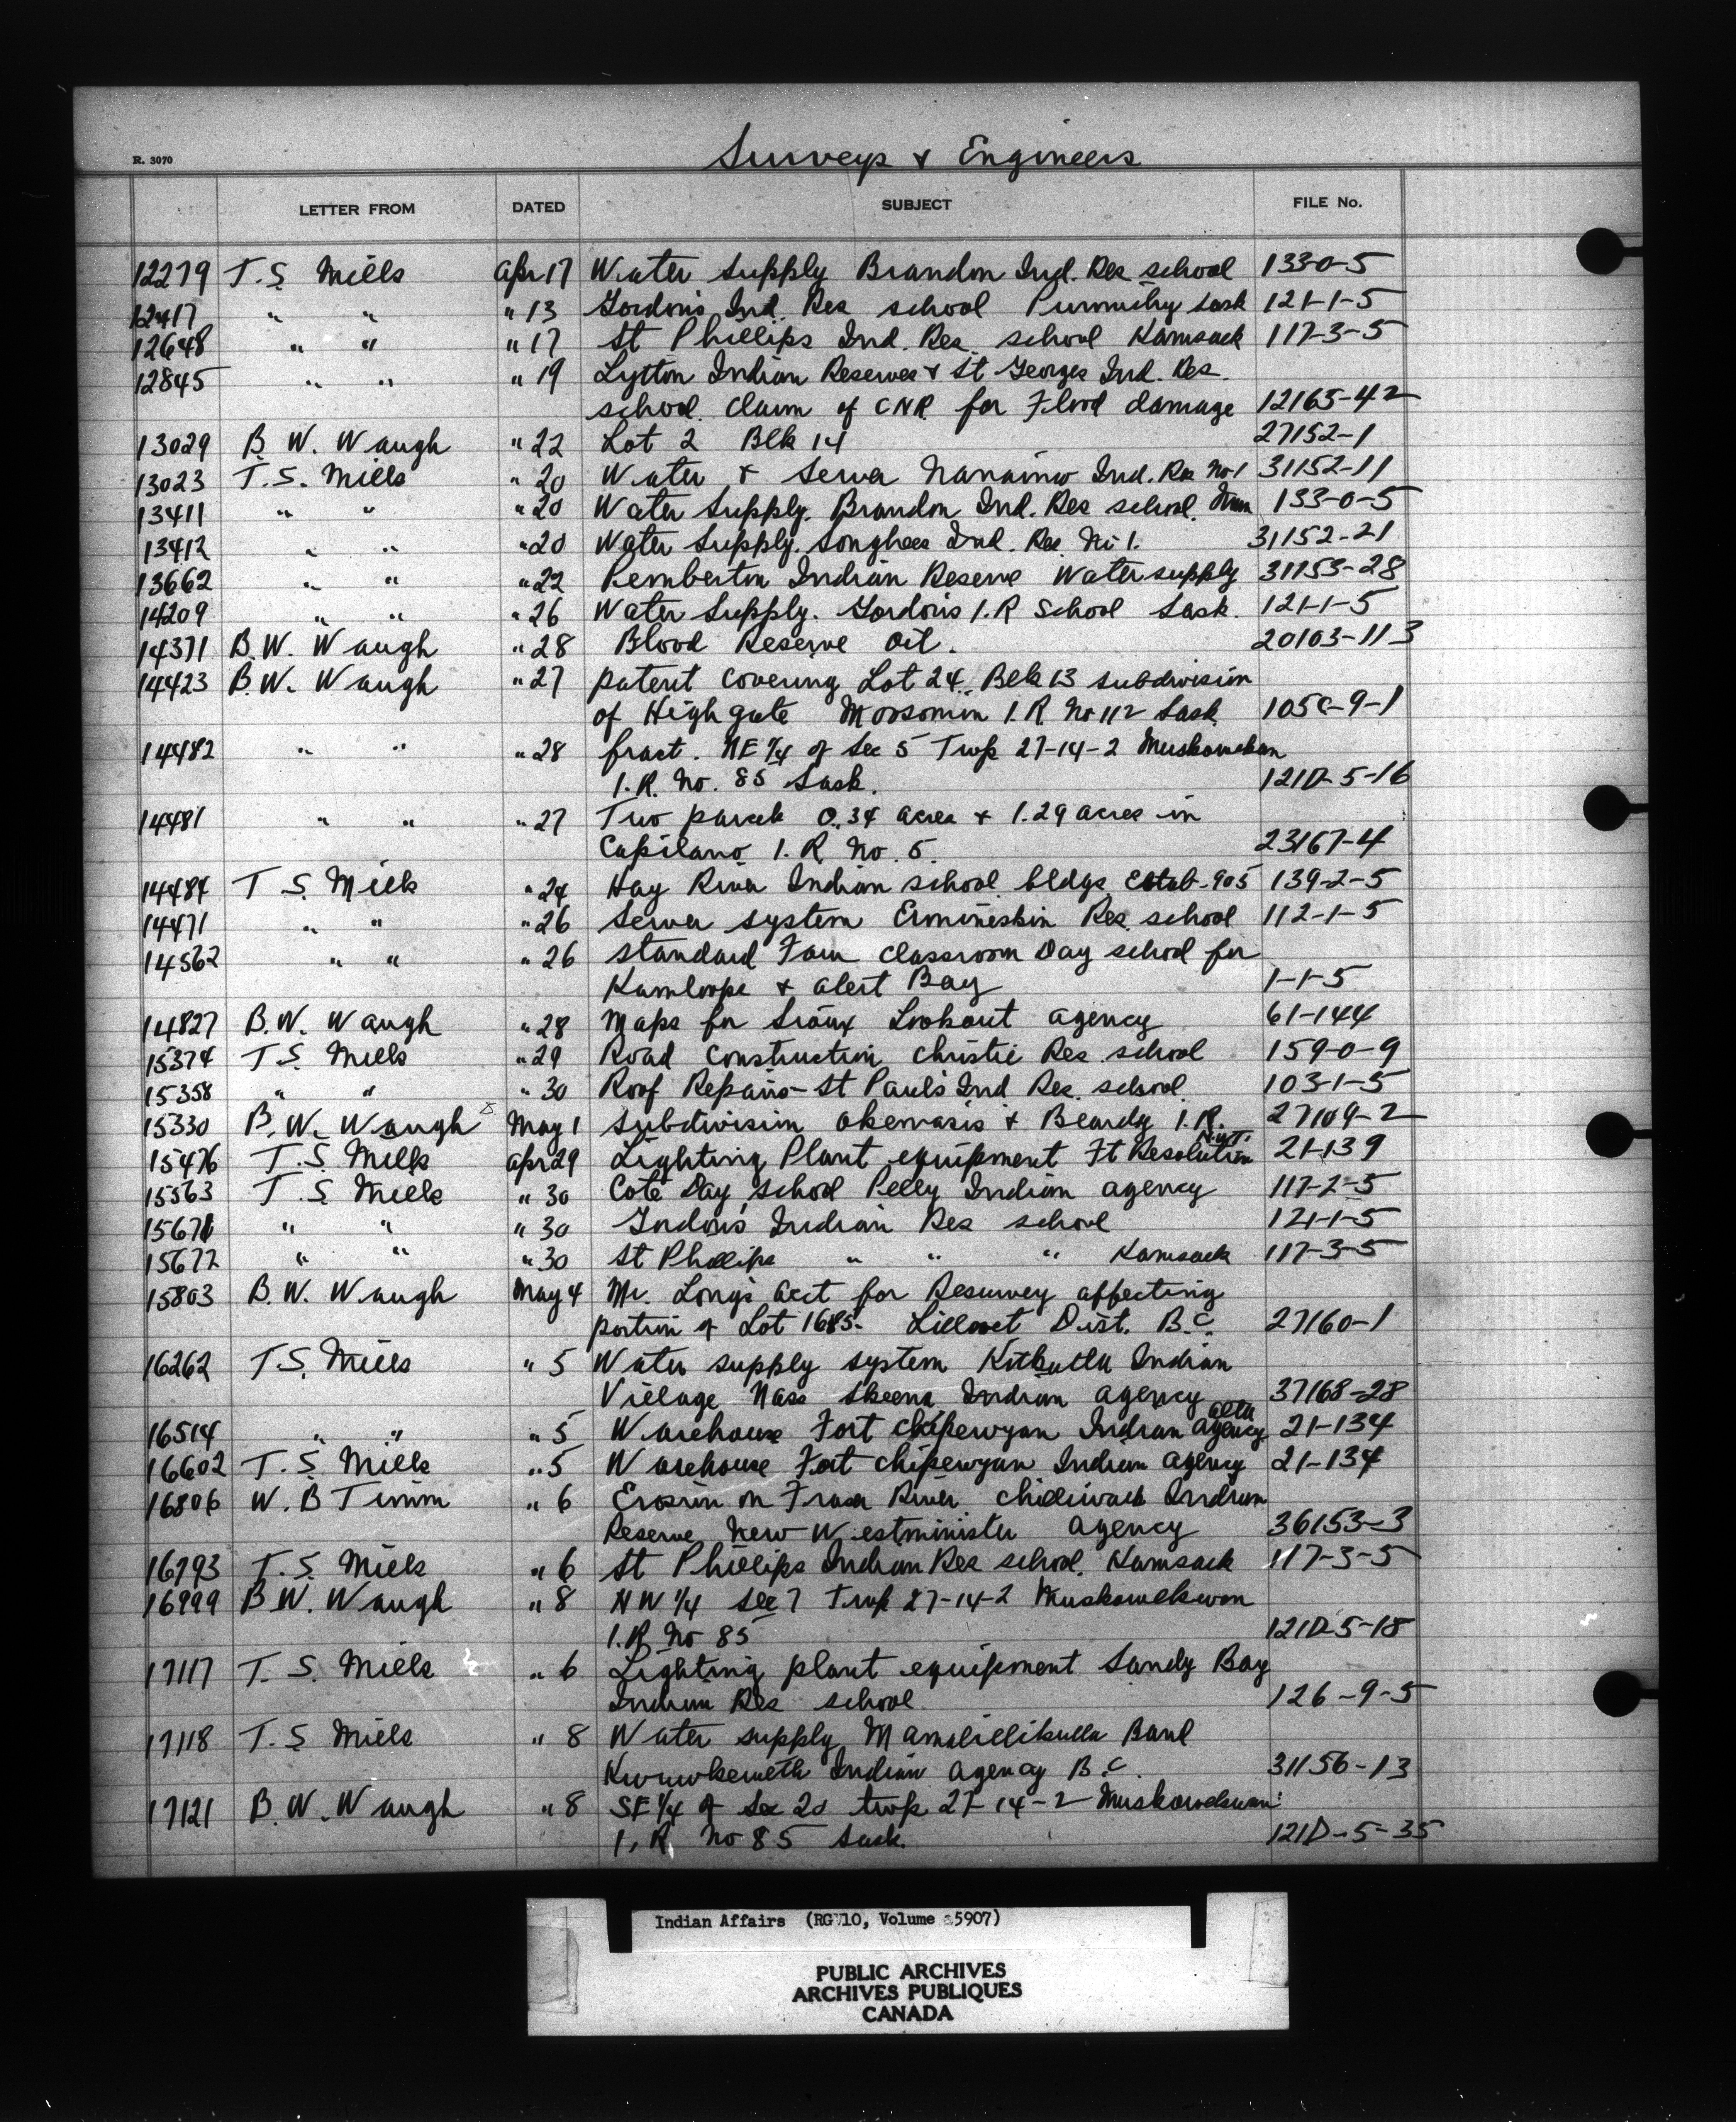 R. 3070
Surveys & Engineers
LETTER FROM DATED SUBJECT FILE No.
12279 T.S. Mills Apr 17 Water Supply Brandon Ind. Res school 133-0-5
12417 " " " 13 Gordon's Ind. Res school Punnichy Sask 121-1-5
12648 " " " 17 St Phillips Ind. Res. school Kamsack 117-3-5
12845 " " " 19 Lytton Indian Reserves & St Georges Ind. Res.
school. Claim of CNR for Flood damage 12165-42
13029 B. W. Waugh " 22 Lot 2 Blk 14 27152-1
13023 T.S. Mills " 20 Water & Sewer Nanaimo Ind. Res No 1 31152-11
13411 " " " 20 Water Supply. Brandon Ind. Res school. Man 133-0-5
13412 " " " 20 Water Supply. Songhees Ind. Res. No 1. 31152-21
13662 " " " 22 Pemberton Indian Reserve Water supply 31153-28
14209 " " " 26 Water Supply. Gordon's I.R School Sask. 121-1-5
14371 B.W. Waugh " 28 Blood Reserve Oil. 20103-113
14423 B.W. Waugh " 27 patent covering Lot 24. Blk 13 subdivision
of Highgate Moosomin I.R. No 112 Sask 105C-9-1
14482 " " " 28 fract. NE 1/4 of Sec 5 Twp 27-14-2 Muskowekan
I.R. No. 85 Sask. 121D-5-16
14481 " " " 27 Two parcels 0.34 acres & 1.29 acres in
Capilano I.R. No. 5. 23167-4
14484 T.S. Mills " 24 Hay River Indian school bldgs Estab. 905 139-2-5
14471 " " " 26 Sewer system Ermineskin Res. school 112-1-5
14562 " " " 26 standard Four classroom Day school for
Kamloops & Alert Bay 1-1-5
14827 B.W. Waugh " 28 Maps for Sioux Lookout agency 61-144
15374 T.S. Mills " 29 Road Construction Christie Res. school 159-0-9
15358 " " " 30 Roof Repairs - St Paul's Ind Res. school. 103-1-5
15330 B.W. Waugh May 1 Subdivision Okemasis & Beardy I.R. 27109-2
15476 T.S. Mills Apr 29 Lighting Plant equipment Ft Resolution N.W.T. 21-139
15563 T.S. Mills " 30 Cote Day School Pelly Indian agency 117-2-5
15671 " " " 30 Gordon's Indian Res school 121-1-5
15672 " " " 30 St Phillips " " " Kamsack 117-3-5
15803 B.W. Waugh May 4 Mr. Long's acct for Resurvey affecting
portion of Lot 1685. Lillooet Dist. B.C. 27160-1
16262 T.S. Mills " 5 Water supply system Kitkatla Indian
Village Nass Skeena Indian agency 37168-28
16514 " " " 5 Warehouse Fort Chipewyan Indian agency Alta 21-134
16602 T.S. Mills " 5 Warehouse Fort Chipewyan Indian agency 21-134
16806 W.B Timm " 6 Erosion on Fraser River Chilliwack Indian
Reserve New Westminister agency 36153-3
16793 T.S. Mills " 6 St Phillips Indian Res school. Kamsack 117-3-5
16999 B.W. Waugh " 8 NW 1/4 Sec 7 Twp 27-14-2 Muskowekwan
I.R. No 85 121D-5-18
17117 T.S. Mills " 6 Lighting plant equipment Sandy Bay
Indian Res school. 126-9-5
17118 T.S. Mills " 8 Water supply Mamalillikulla Band
Kwawkewelth Indian agency B.C. 31156-13
17121 B.W. Waugh " 8 SE 1/4 of Sec 20 twp 27-14-2 Muskowekwan
I.R. No 85 Sask. 121D-5-35
Indian Affairs (RG 10, Volume 5907)
PUBLIC ARCHIVES
ARCHIVES PUBLIQUES
CANADA